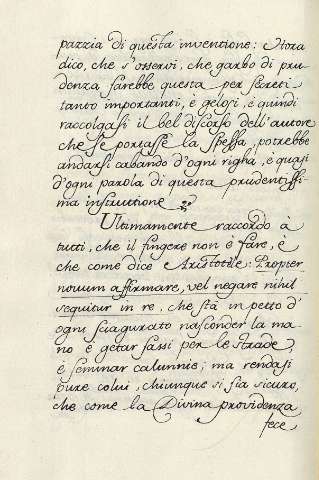 pazzia di questa inventione: Hora
dico, che s'osservi, che garbo di pru-
denza sarebbe questa per secreti
tanto importanti, è gelosi, è quindi
raccolgasi il bel discorso dell'autore
che se portasse la spessa, potrebbe
andarsi cabando d'ogni righa, è quasi
d'ogni parola di questa prudentissi-
ma instruttione
Ultimamente raccordo à
tutti, che il fingere non è fare, è
che come dice Aristotile: Propter
nostrum affirmare, vel negare nihil
sequitur in re, che stà in petto d'
ogni sciagurato nasconder la ma-
no è getar sassi per le strade,
è seminar calunnie; ma rendasi
pure colui, chiunque si sia sicuro,
che come la Divina providenza
fece